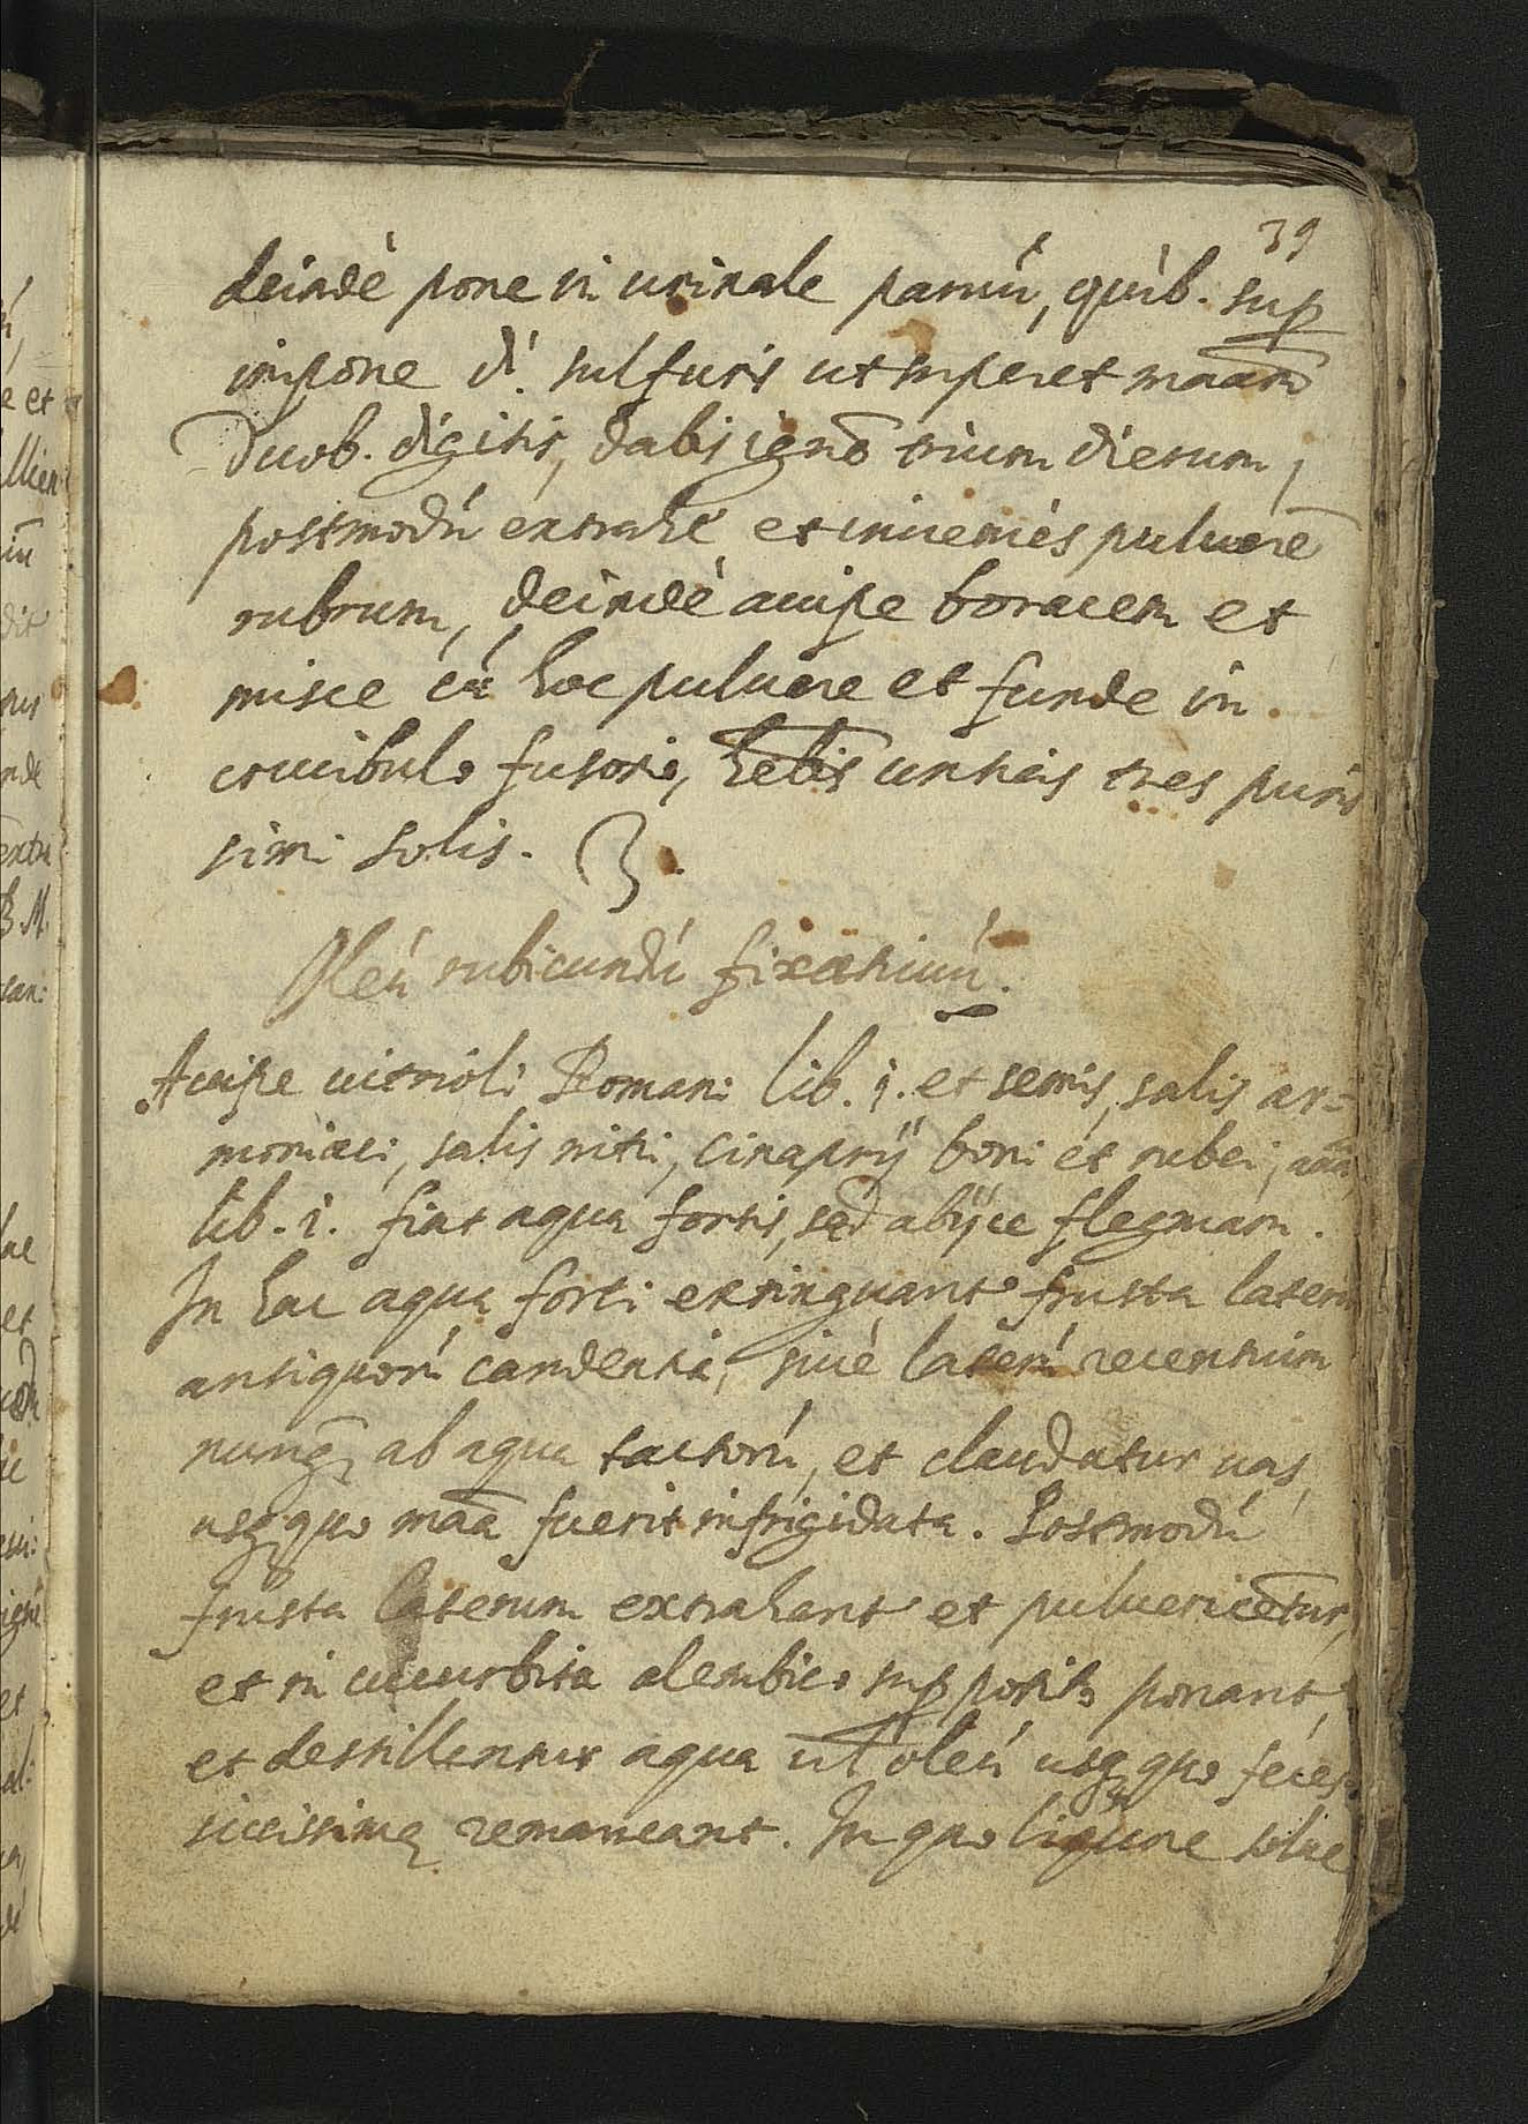 39
deindè pone in urinale paruũ, quib. sup
impone d. sulfuris ut superet maam
duob. digitis, dabis ignẽ trium dierum,
postmodũ extrahe et inuenies puluerẽ
rubrum, deindè accipe boracem et
misce cũ hoc puluere et funde in
crucibulo fusorio, hebis untias tres puris
simi solis.
Oleũ rubicundũ fixatiuũ.
Accipe uitrioli Romani lib. i. et semis, salis ar=
moniaci, salis nitri, cinaprij boni et rubei, ana
lib. i. fiat aqua fortis, sed abijce flegmam.
In hac aqua forti extinguant frusta laterũ
antiquorũ candentia, siuè laterũ recentium
nunq ab aqua tactorũ, et claudatur uas,
usq quo maa fuerit infrigidata. Postmodũ
frusta laterum extrahant et puluericẽtur,
et in cucurbita alembico sup posito ponant,
et destillentur aqua ul oleũ usq quo feces
siccissimę remaneant. In quo liquore solue